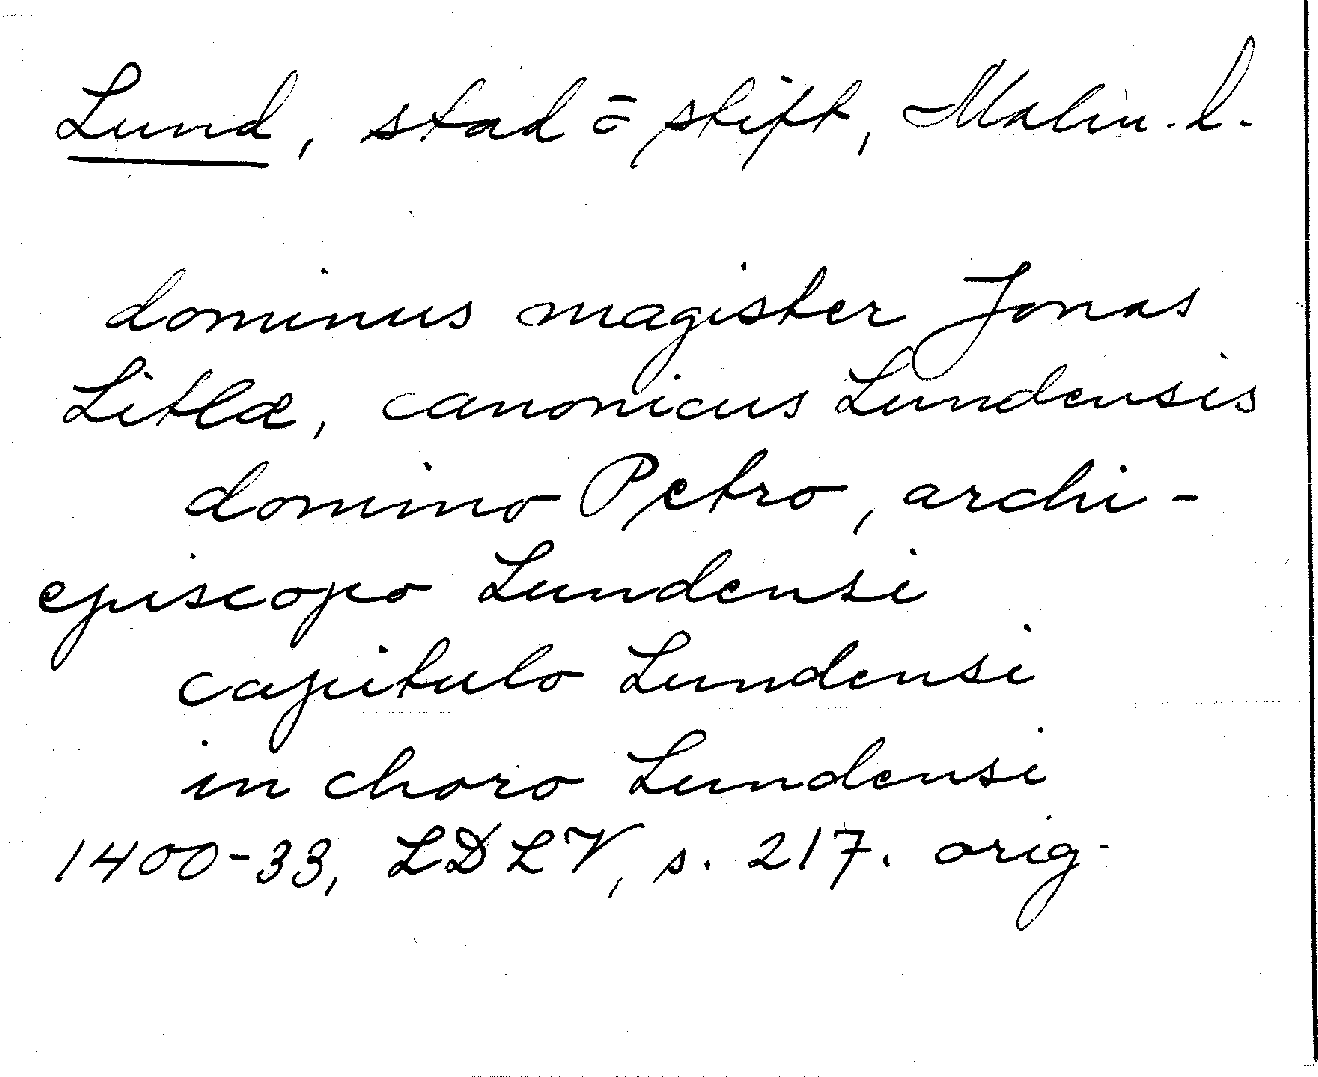 Lund, stad o stift, Malm. l.
dominus magister Jonas
Litlæ, canonicus Lundensis
domino Petro, archi-
episcopo Lundensi
capitulo Lundensi
in choro Lundensi
1400-33, LDLV, s. 217. orig.